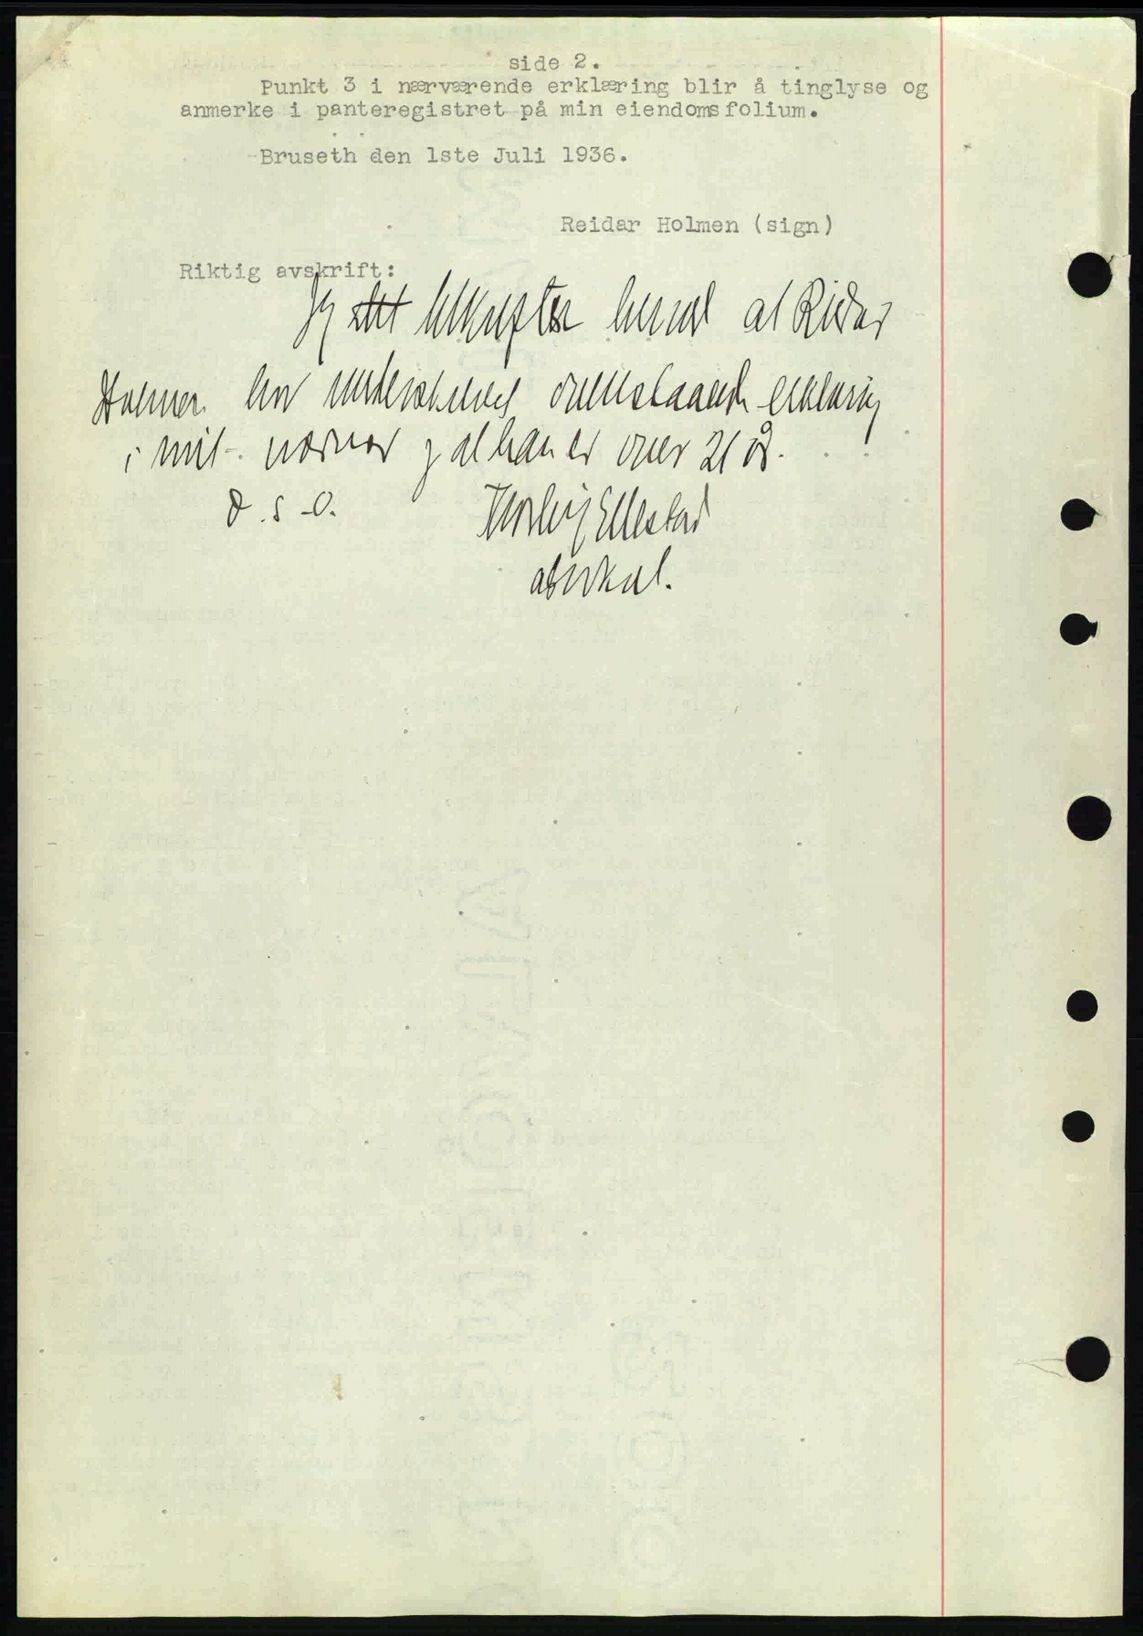 side 2.
Punkt 3 i nærværende erklæring blir å tinglyse og
anmerke i panteregistret på min eiendomsfolium.
Bruseth den 1ste Juli 1936.
Reidar Holmen (sign)
Riktig avskrift:
Jeg bekrefter herved at Reidar
Holmen har underskrevet ovenstaaende erklæring
i mit nærvær og at han er over 21 år.
D.s-O.
Ellestad
advokat.